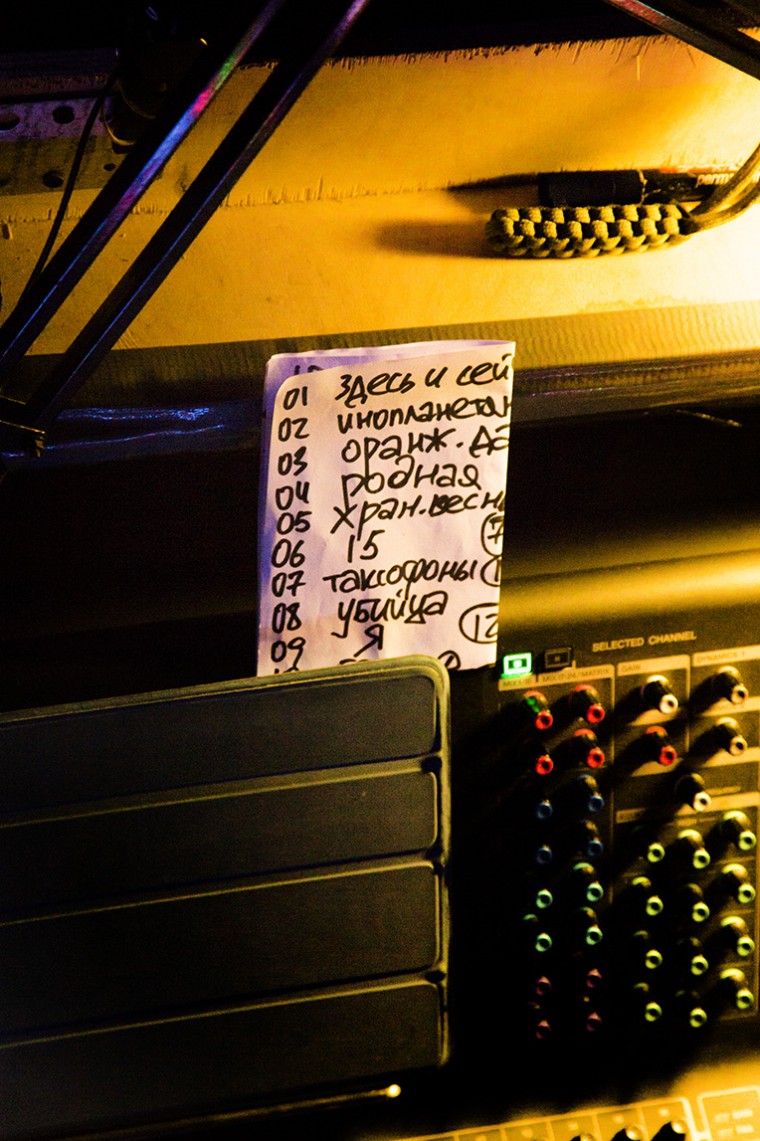 perm
01 Здесь и сей
02 инопланетян
03 оранж. Да
04 родная
05 хран. весн
06 15 7
07 таксофоны 1
08 убийца 12
09 Я
SELECTED CHANNEL
GAIN